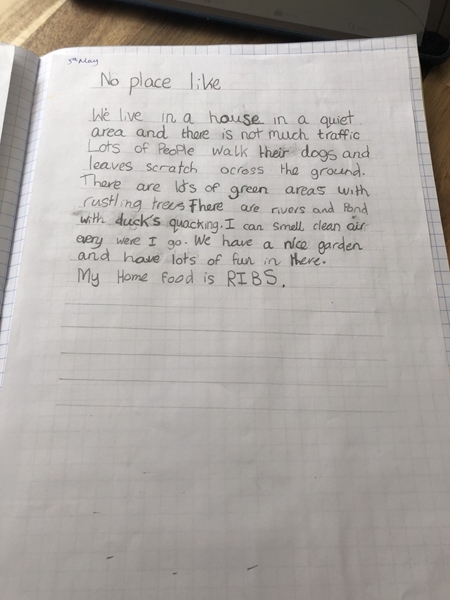 5th May
No place like
We live in a house in a quiet
area and there is not much traffic
Lots of People walk their dogs and
leaves scratch across the ground.
There are lots of green areas with
rustling trees There are rivers and Pond
with duck's quacking. I can smell clean air
every were I go. We have a nice garden
and have lots of fun in there.
My Home Food is RIBS.